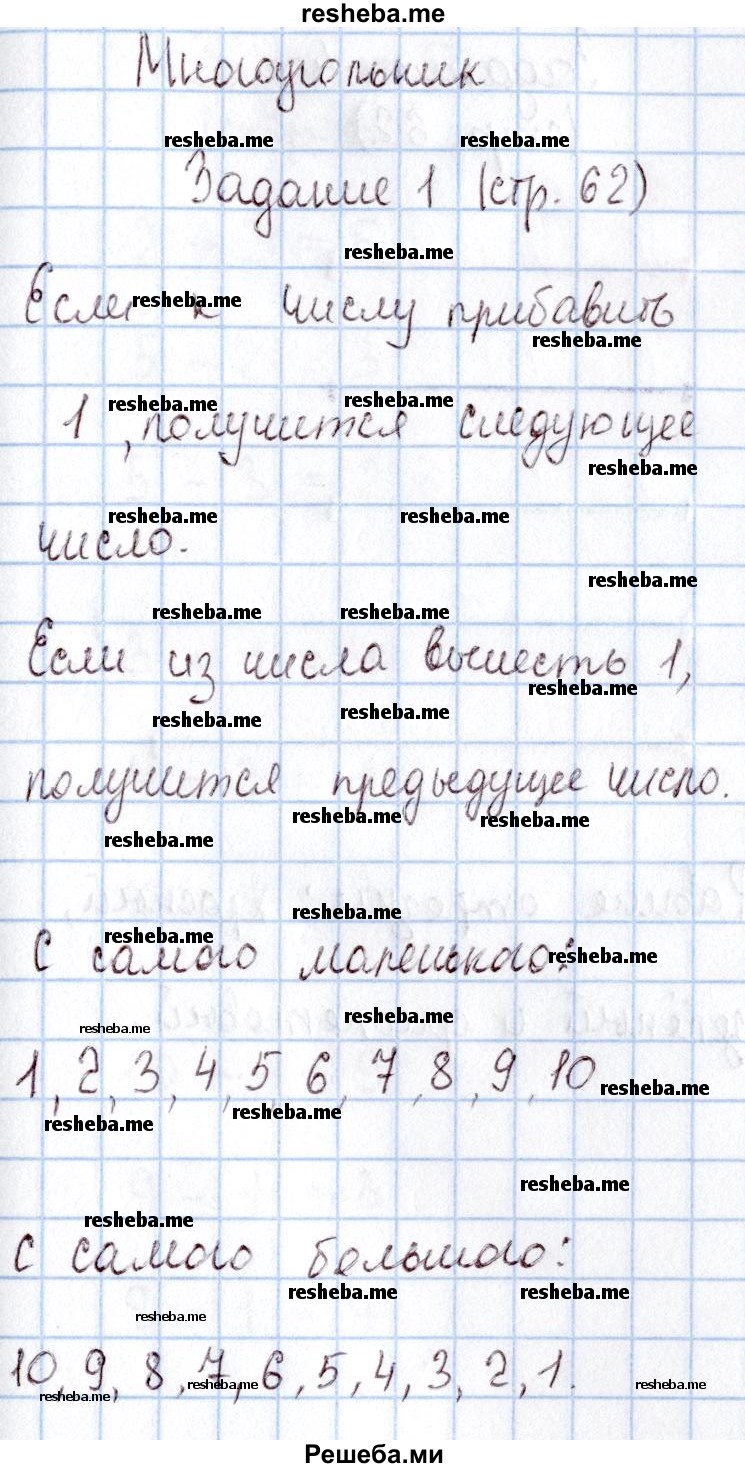 resheba.me
Многоугольник
resheba.me resheba.me
Задание 1 (стр. 62)
resheba.me
Если к числу прибавить
resheba.me
resheba.me
1, получится следующее
resheba.me resheba.me
resheba.me
resheba.me resheba.me
число.
resheba.me
resheba.me resheba.me
Если из числа вычесть 1,
resheba.me
resheba.me resheba.me
получится предыдущее число.
resheba.me resheba.me
resheba.me
resheba.me
resheba.me
С самого маленького:
resheba.me
resheba.me
resheba.me
1, 2, 3, 4, 5, 6, 7, 8, 9, 10
resheba.me
resheba.me resheba.me
resheba.me
resheba.me
С самого большого:
resheba.me resheba.me
resheba.me
10, 9, 8, 7, 6, 5, 4, 3, 2, 1.
resheba.me resheba.me resheba.me
Решеба.ми